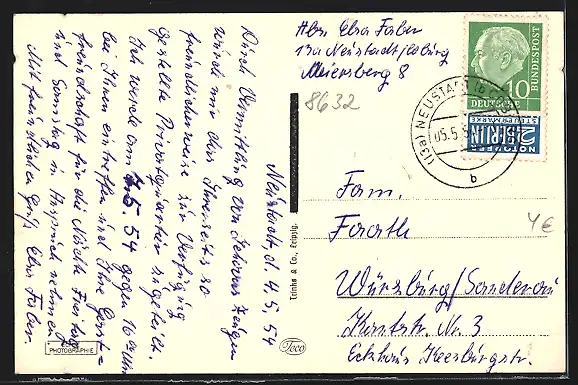 Neustadt, d. 4.5.54
Durch Vermittlung von Fahrer Zeugen
wurde mir Ihrerseits so
freundlicherweise zur Verfügung
gestellte Privatquartier zugeteilt.
Ich werde am 7.5.54 gegen 16 Uhr
bei Ihnen eintreffen und Ihre Gast-
freundschaft für die Nächte Freitag
und Samstag in Anspruch nehmen.
Mit freundlichem Gruß Elsa Faber.
PHOTOGRAPHIE
Abs. Elsa Faber
13a Neustadt/Coburg
Meiersberg 8
8632
Trinks & Co., Leipzig.
Trico
10
DEUTSCHE
BUNDESPOST
NOTOPFER
2 BERLIN
STEUERMARKE
(13a) NEUSTADT (b COBURG)
05.5.5
b
Fam.
Würzburg/Sanderau
Kantstr. Nr. 3
Eckhaus Keesburgstr.
4€